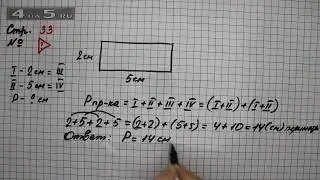 4 GA 5 RU
Стр. 33
№
2см
5см
I - 2см = III
II - 5см = IV
P - ? см
P пр-ка = I + II + III + IV = (I+II) + (I+II)
2+5+2+5 = (2+2) + (5+5) = 4+10 = 14(см) периметр
Ответ: P = 14 см